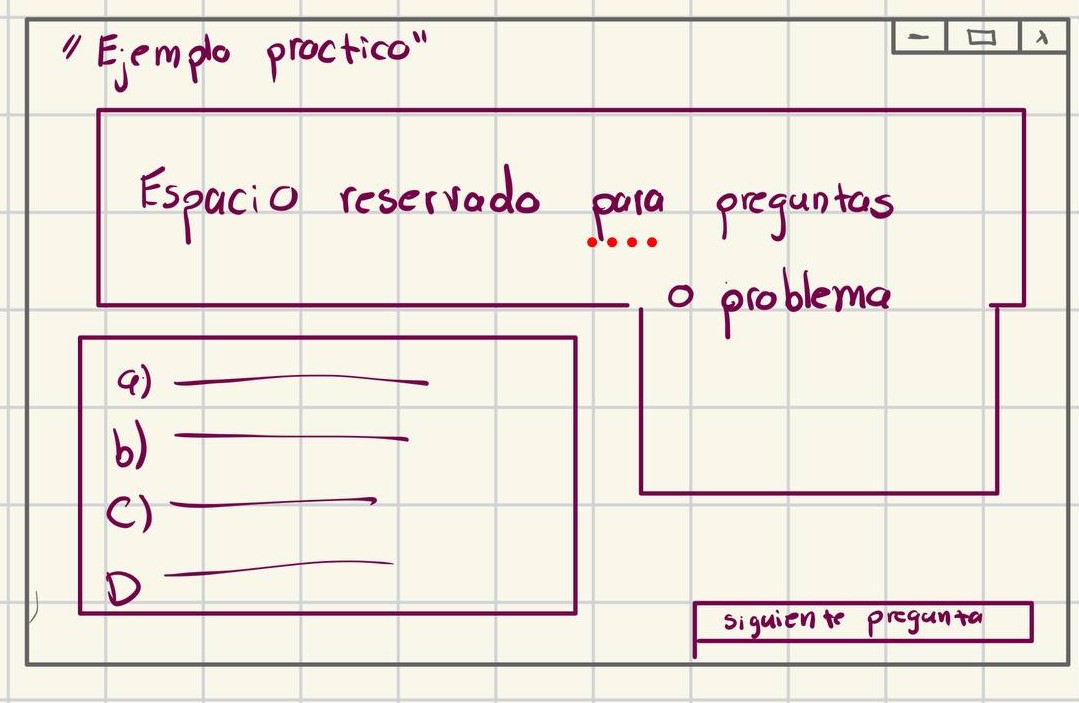 "Ejemplo practico"
Espacio reservado para preguntas
o problema
a)
b)
c)
D
siguiente pregunta